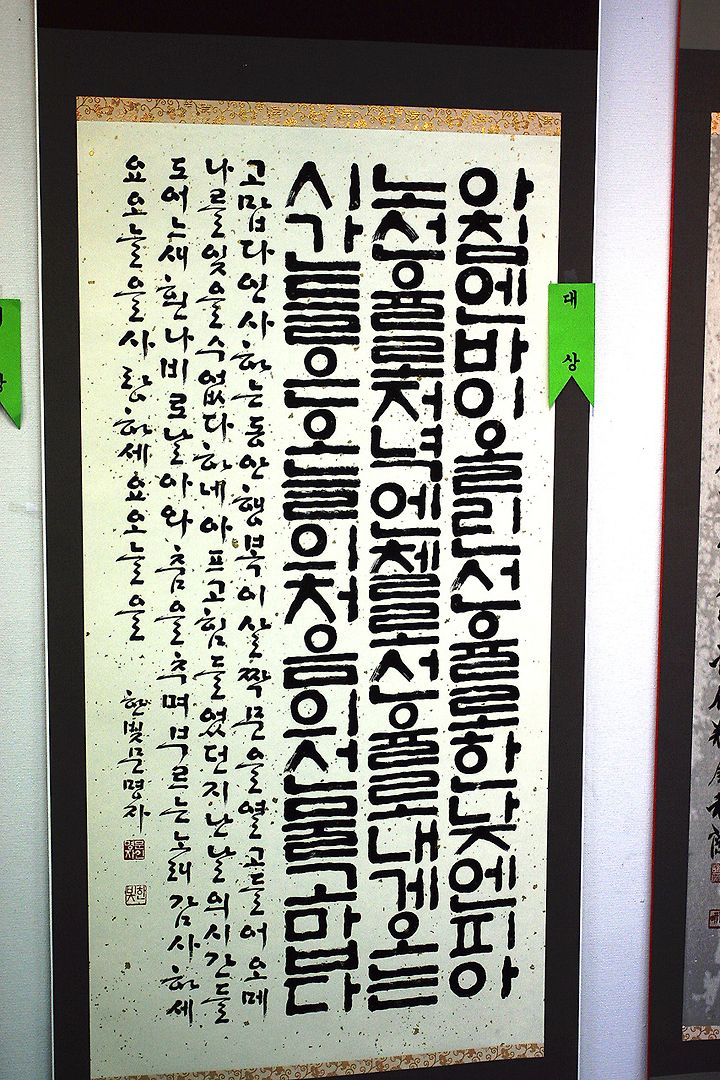 아침엔바이올린선율로한낮엔피아
노선율로저녁엔첼로선율로내게오는
시간들은오늘의처음의선물고맙다
고맙다인사하는동안행복이살짝문을열고들어오메
나를잊을수없다하네아프고힘들었던지난날의시간들
도어느새흰나비로날아와춤을추며부르는노래감사하세
요오늘을사랑하세요오늘을
한빛문명자
한빛
대상
상